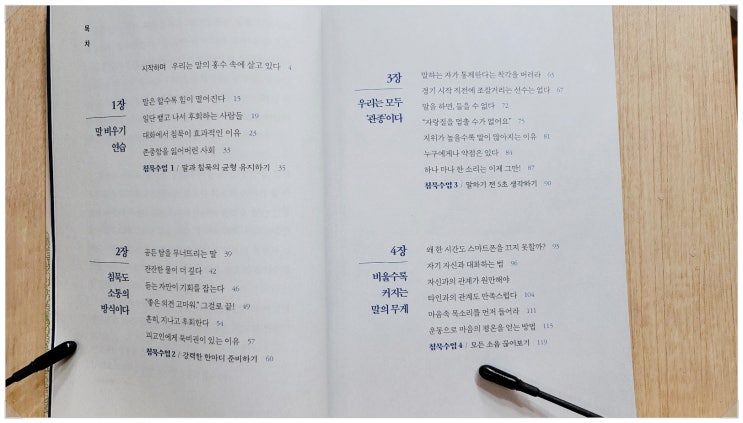 목
차
시작하며 우리는 말의 홍수 속에 살고 있다 4
1장
말 비우기
연습
말은 할수록 힘이 떨어진다 15
일단 뱉고 나서 후회하는 사람들 19
대화에서 침묵이 효과적인 이유 23
존중함을 잃어버린 사회 33
침묵수업 1 / 말과 침묵의 균형 유지하기 35
2장
침묵도
소통의
방식이다
공든 탑을 무너뜨리는 말 39
잔잔한 물이 더 깊다 42
듣는 자만이 기회를 잡는다 46
"좋은 의견 고마워." 그걸로 끝! 49
흔히, 지나고 후회한다 54
피고인에게 묵비권이 있는 이유 57
침묵수업 2 / 강력한 한마디 준비하기 60
3장
우리는 모두
'관종'이다
말하는 자가 통제한다는 착각을 버려라 63
경기 시작 직전에 조잘거리는 선수는 없다 67
말을 하면, 들을 수 없다 72
"자랑질을 멈출 수가 없어요" 75
지위가 높을수록 말이 많아지는 이유 81
누구에게나 약점은 있다 84
하나 마나 한 소리는 이제 그만! 87
침묵수업 3 / 말하기 전 5초 생각하기 90
4장
비울수록
커지는
말의 무게
왜 한 시간도 스마트폰을 끄지 못할까? 93
자기 자신과 대화하는 법 96
자신과의 관계가 원만해야
타인과의 관계도 만족스럽다 104
마음속 목소리를 먼저 들어라 111
운동으로 마음의 평온을 얻는 방법 115
침묵수업 4 / 모든 소음 끊어보기 119